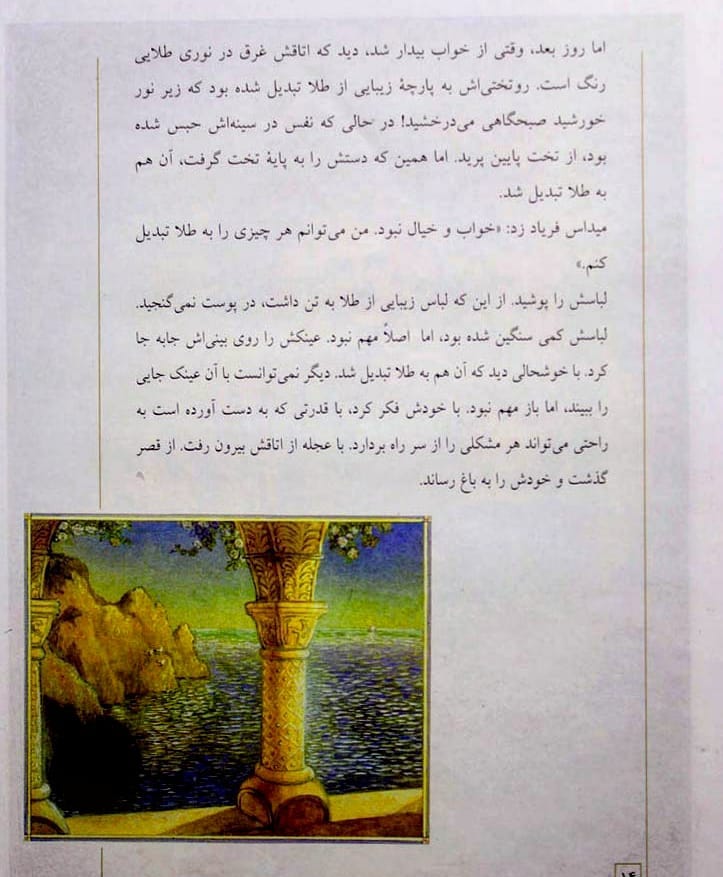 اما روز بعد، وقتی از خواب بیدار شد، دید که اتاقش غرق در نوری طلایی
رنگ است. روتختی‌اش به پارچهٔ زیبایی از طلا تبدیل شده بود که زیر نور
خورشید صبحگاهی می‌درخشید! در حالی که نفس در سینه‌اش حبس شده
بود، از تخت پایین پرید. اما همین که دستش را به پایهٔ تخت گرفت، آن هم
به طلا تبدیل شد.
میداس فریاد زد: «خواب و خیال نبود. من می‌توانم هر چیزی را به طلا تبدیل
کنم.»
لباسش را پوشید. از این که لباس زیبایی از طلا به تن داشت، در پوست نمی‌گنجید.
لباسش کمی سنگین شده بود، اما اصلاً مهم نبود. عینکش را روی بینی‌اش جابه جا
کرد. با خوشحالی دید که آن هم به طلا تبدیل شد. دیگر نمی‌توانست با آن عینک جایی
را ببیند، اما باز مهم نبود. با خودش فکر کرد، با قدرتی که به دست آورده است به
راحتی می‌تواند هر مشکلی را از سر راه بردارد. با عجله از اتاقش بیرون رفت. از قصر
گذشت و خودش را به باغ رساند.
۱۴